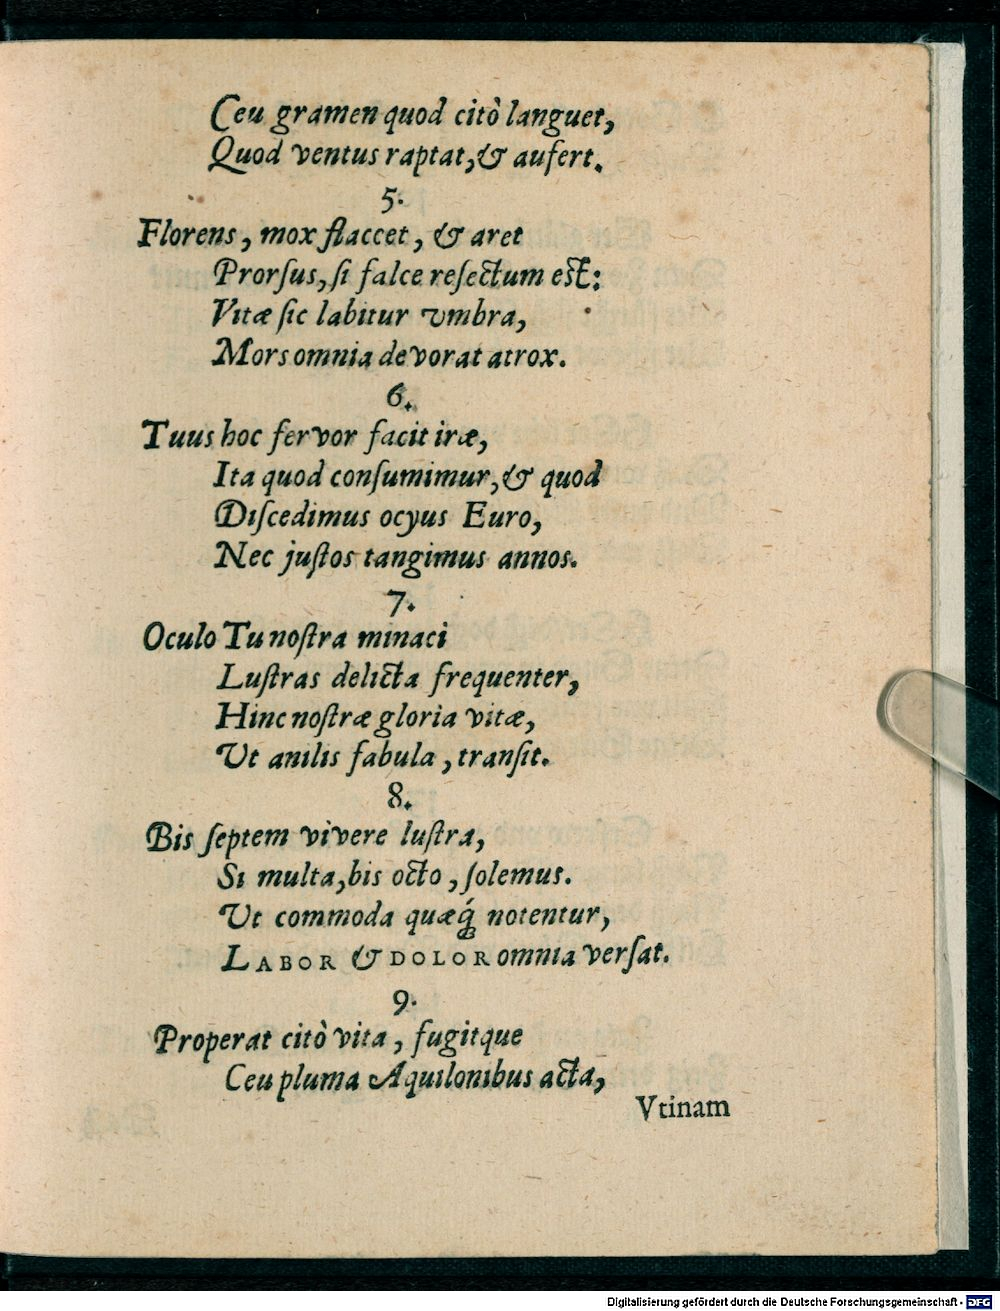 Ceu gramen quod citò languet,
Quod ventus raptat, & aufert.
5.
Florens, mox flaccet, & aret
Prorſus, ſi falce reſectum eſt:
Vitæ ſic labitur vmbra,
Mors omnia devorat atrox.
6.
Tuus hoc fervor facit iræ,
Ita quod conſumimur, & quod
Diſcedimus ocyus Euro,
Nec juſtos tangimus annos.
7.
Oculo Tu noſtra minaci
Luſtras delicta frequenter,
Hinc noſtræ gloria vitæ,
Ut anilis fabula, tranſit.
8.
Bis ſeptem vivere luſtra,
Si multa, bis octo, ſolemus.
Ut commoda quæq́; notentur,
LABOR & DOLOR omnia verſat.
9.
Properat citò vita, fugitque
Ceu pluma Aquilonibus acta,
Vtinam
Digitalisierung gefördert durch die Deutsche Forschungsgemeinschaft - DFG